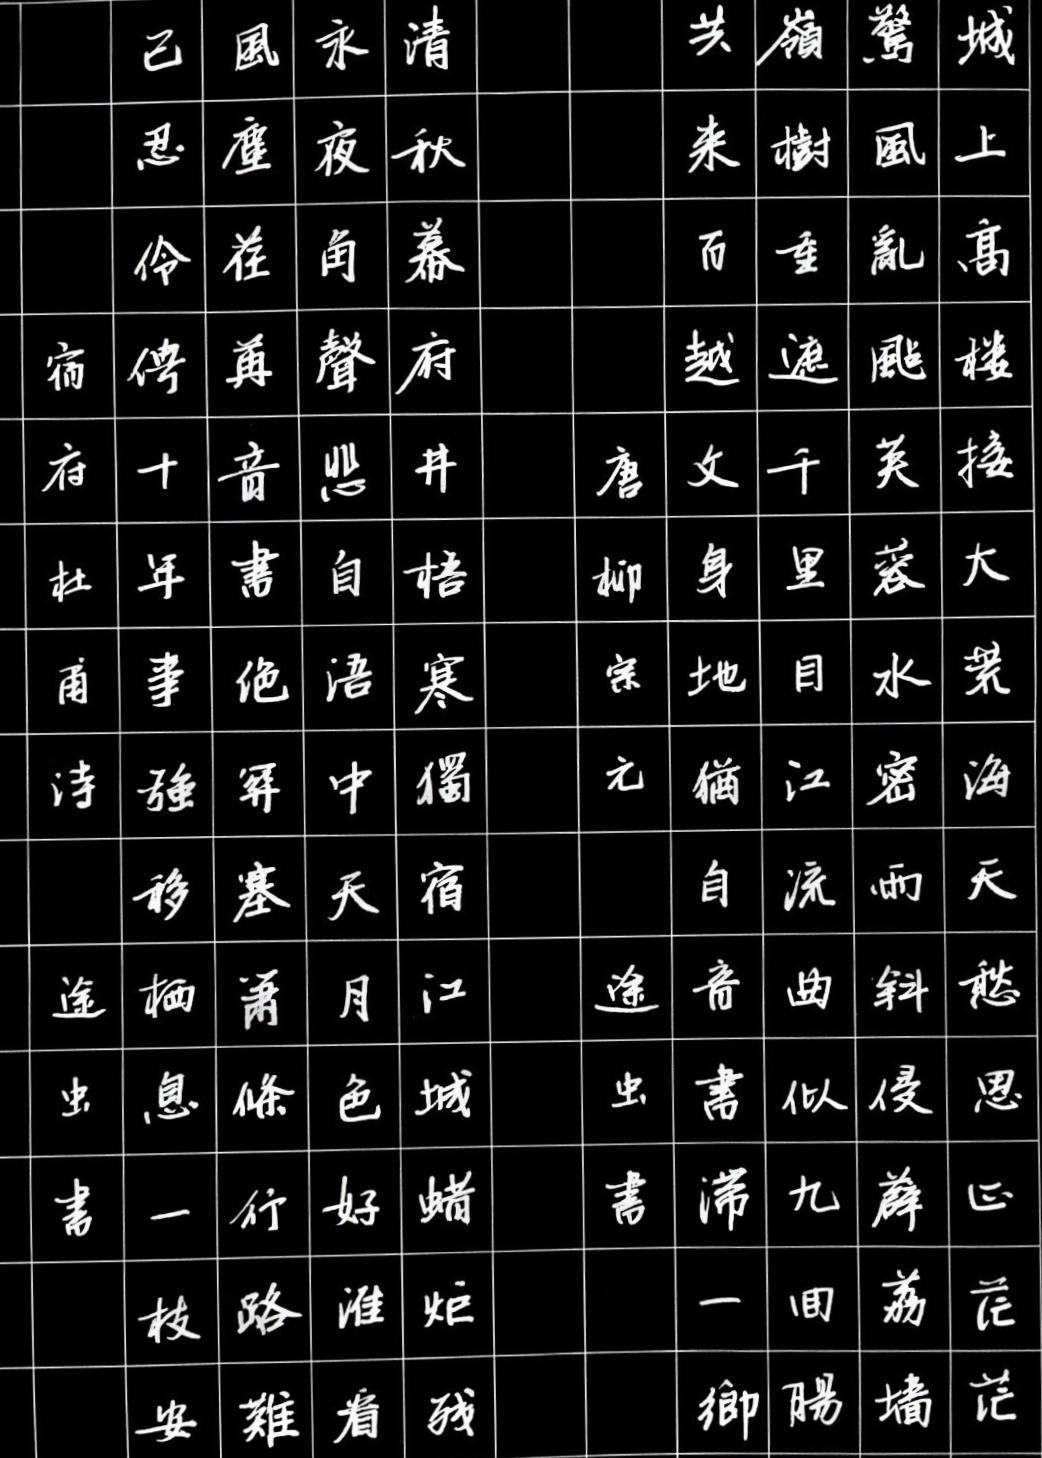 城上高楼接大荒海天愁思正茫茫
驚風亂颭芙蓉水密雨斜侵薜荔墙
嶺樹重遮千里目江流曲似九回腸
共来百越文身地猶自音書滞一鄉
唐柳宗元途虫書
清秋幕府井梧寒獨宿江城蜡炬残
永夜角聲悲自语中天月色好谁看
風塵荏苒音書绝關塞萧條行路難
已忍伶俜十年事强移栖息一枝安
宿府杜甫诗途虫書